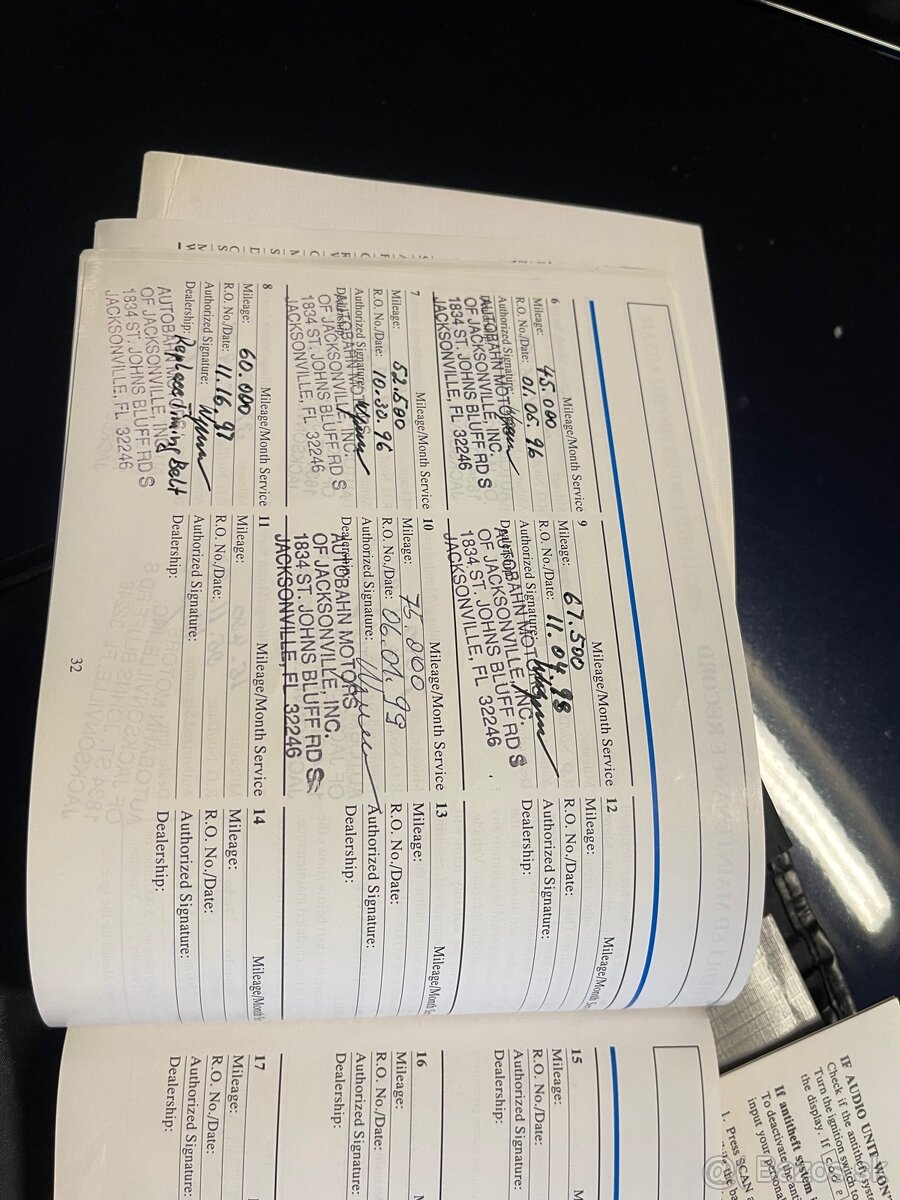 6 Mileage/Month Service
Mileage: 45.000
R.O. No./Date: 01.05.96
Authorized Signature:
Dealership:
AUTOBAHN MOTORS
OF JACKSONVILLE, INC.
1834 ST. JOHNS BLUFF RD S
JACKSONVILLE, FL 32246
7 Mileage/Month Service
Mileage: 52.500
R.O. No./Date: 10.30.96
Authorized Signature:
Dealership:
AUTOBAHN MOTORS
OF JACKSONVILLE, INC.
1834 ST. JOHNS BLUFF RD S
JACKSONVILLE, FL 32246
8 Mileage/Month Service
Mileage: 60.000
R.O. No./Date: 11.16.97
Authorized Signature:
Dealership: Replaced Timing Belt
AUTOBAHN
OF JACKSONVILLE, INC
1834 ST. JOHNS BLUFF RD S
JACKSONVILLE, FL 32246
9 Mileage/Month Service
Mileage: 67.500
R.O. No./Date: 11.04.98
Authorized Signature:
Dealership:
AUTOBAHN MOTORS
OF JACKSONVILLE, INC.
1834 ST. JOHNS BLUFF RD S
JACKSONVILLE, FL 32246
10 Mileage/Month Service
Mileage: 75.000
R.O. No./Date: 06.01.99
Authorized Signature:
Dealership:
AUTOBAHN MOTORS
OF JACKSONVILLE, INC.
1834 ST. JOHNS BLUFF RD S
JACKSONVILLE, FL 32246
11 Mileage/Month Service
Mileage:
R.O. No./Date:
Authorized Signature:
Dealership:
12 Mileage/Month Se
Mileage:
R.O. No./Date:
Authorized Signature:
Dealership:
13 Mileage/Month Se
Mileage:
R.O. No./Date:
Authorized Signature:
Dealership:
14 Mileage/Month S
Mileage:
R.O. No./Date:
Authorized Signature:
Dealership:
32
15
Mileage:
R.O. No./Date:
Authorized Signature:
Dealership:
16
Mileage:
R.O. No./Date:
Authorized Signature:
Dealership:
17
Mileage:
R.O. No./Date:
Authorized Signature:
Dealership:
IF AUDIO UNIT WON'T
Check if the antitheft sys
Turn the ignition switch
the display. If
If antitheft system
To deactivate the
input your personal
1. Press SCAN